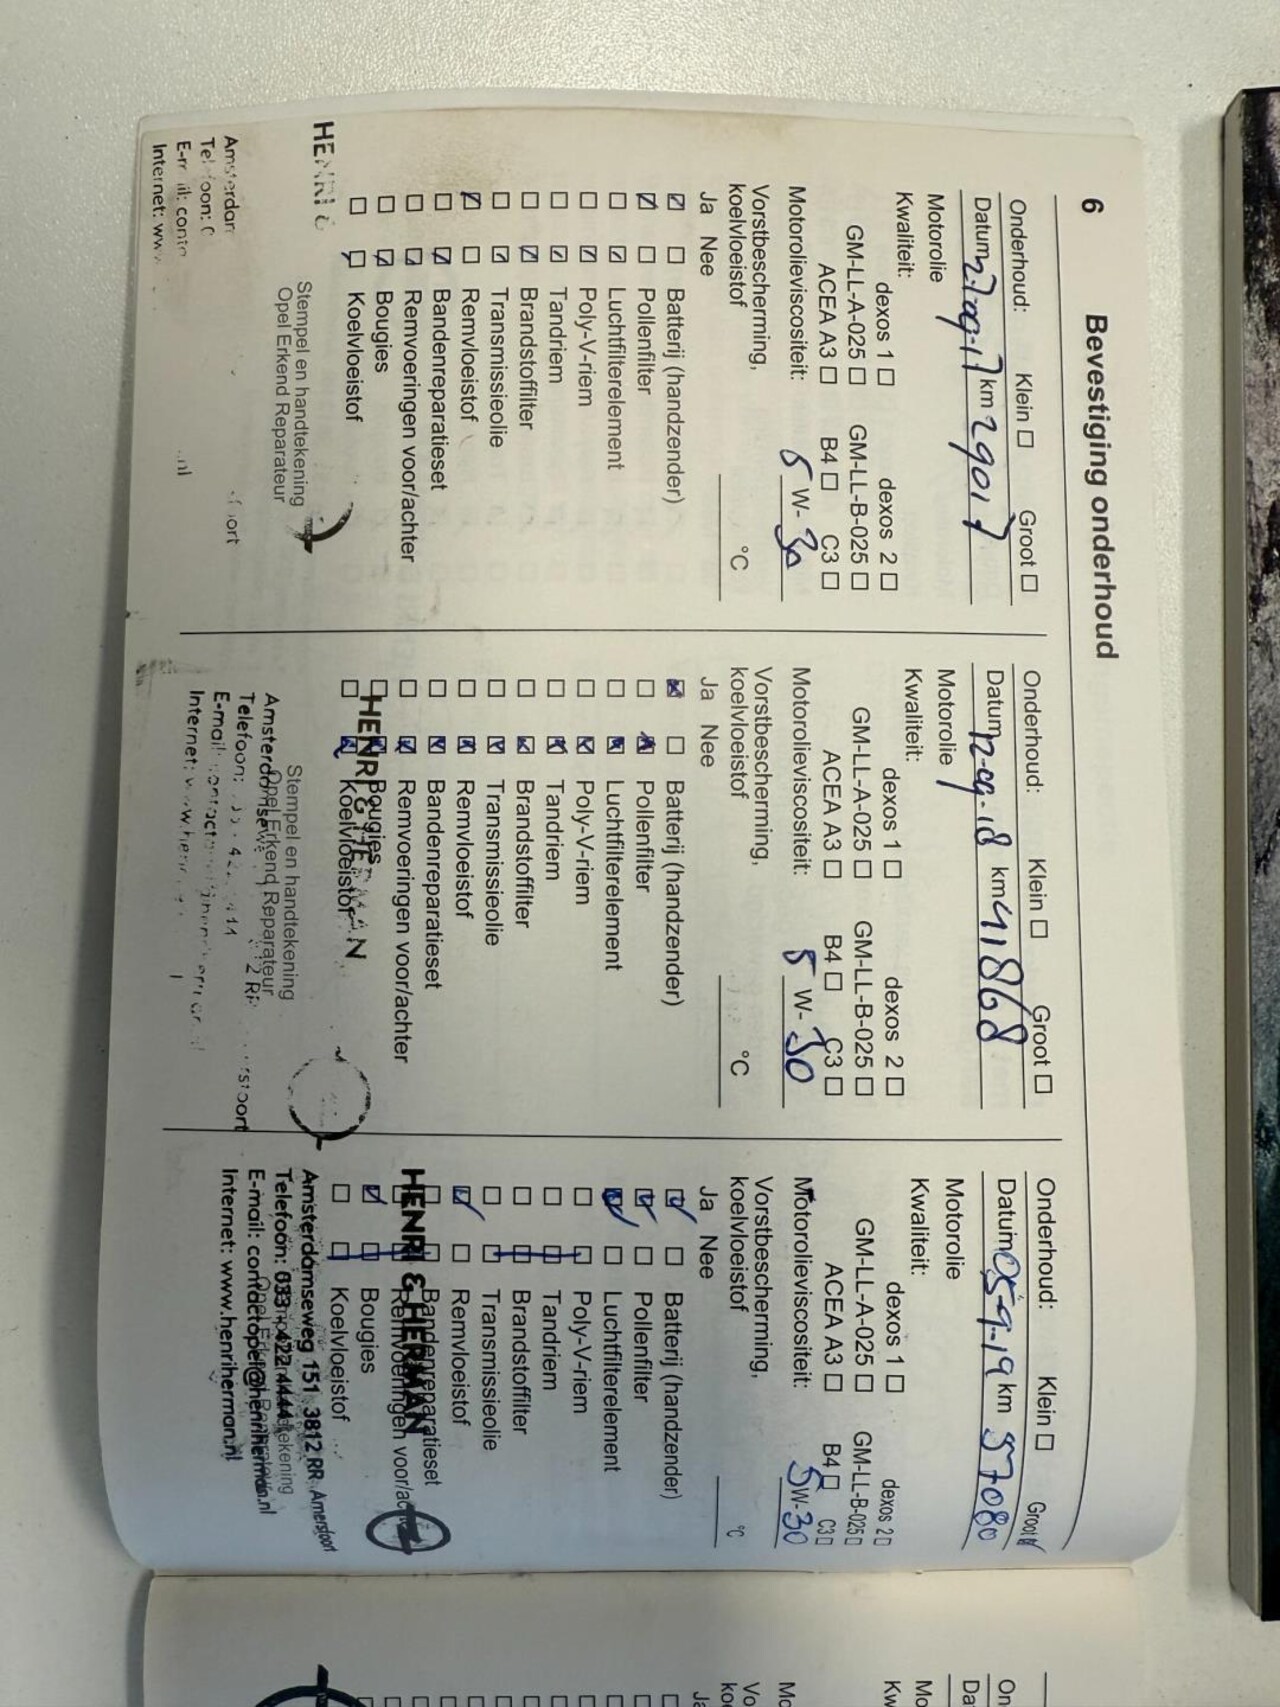 6
Bevestiging onderhoud
Onderhoud: Klein ☐ Groot ☐
Datum 27-09-17 km 29017
Motorolie
Kwaliteit:
dexos 1 ☐ dexos 2 ☐
GM-LL-A-025 ☐ GM-LL-B-025 ☐
ACEA A3 ☐ B4 ☐ C3 ☐
Motorolieviscositeit: 5 W- 30
Vorstbescherming,
koelvloeistof °C
Ja Nee
☑ ☐ Batterij (handzender)
☑ ☐ Pollenfilter
☐ ☑ Luchtfilterelement
☐ ☑ Poly-V-riem
☐ ☑ Tandriem
☐ ☑ Brandstoffilter
☐ ☑ Transmissieolie
☑ ☐ Remvloeistof
☐ ☑ Bandenreparatieset
☐ ☑ Remvoeringen voor/achter
☐ ☑ Bougies
☐ ☑ Koelvloeistof
Stempel en handtekening
Opel Erkend Reparateur
Onderhoud: Klein ☐ Groot ☐
Datum 12-09-18 km 41868
Motorolie
Kwaliteit:
dexos 1 ☐ dexos 2 ☐
GM-LL-A-025 ☐ GM-LL-B-025 ☐
ACEA A3 ☐ B4 ☐ C3 ☐
Motorolieviscositeit: 5 W- 30
Vorstbescherming,
koelvloeistof °C
Ja Nee
☒ ☐ Batterij (handzender)
☐ ☑ Pollenfilter
☐ ☑ Luchtfilterelement
☐ ☑ Poly-V-riem
☐ ☑ Tandriem
☐ ☑ Brandstoffilter
☐ ☑ Transmissieolie
☐ ☑ Remvloeistof
☐ ☑ Bandenreparatieset
☐ ☑ Remvoeringen voor/achter
☐ ☑ Bougies
☐ ☑ Koelvloeistof
HENRI & HERMAN
Stempel en handtekening
Opel Erkend Reparateur
Amsterdamsewe
Telefoon:
E-mail:
Internet:
Onderhoud: Klein ☐ Groot ☑
Datum 05-9-19 km 57080
Motorolie
Kwaliteit:
dexos 1 ☐ dexos 2 ☐
GM-LL-A-025 ☐ GM-LL-B-025 ☐
ACEA A3 ☐ B4 ☐ C3 ☐
Motorolieviscositeit: 5 W- 30
Vorstbescherming,
koelvloeistof °C
Ja Nee
☑ ☐ Batterij (handzender)
☑ ☐ Pollenfilter
☑ ☐ Luchtfilterelement
☐ ☐ Poly-V-riem
☐ ☐ Tandriem
☐ ☐ Brandstoffilter
☐ ☐ Transmissieolie
☑ ☐ Remvloeistof
☐ ☐ Bandenreparatieset
☐ ☐ Remvoeringen voor/ac
☑ ☐ Bougies
☐ ☐ Koelvloeistof
HENRI & HERMAN
Amsterdamseweg 151 3812 RR Amersfoort
Telefoon: 033 - 422 4444
E-mail: contactopel@henriherman.nl
Internet: www.henriherman.nl